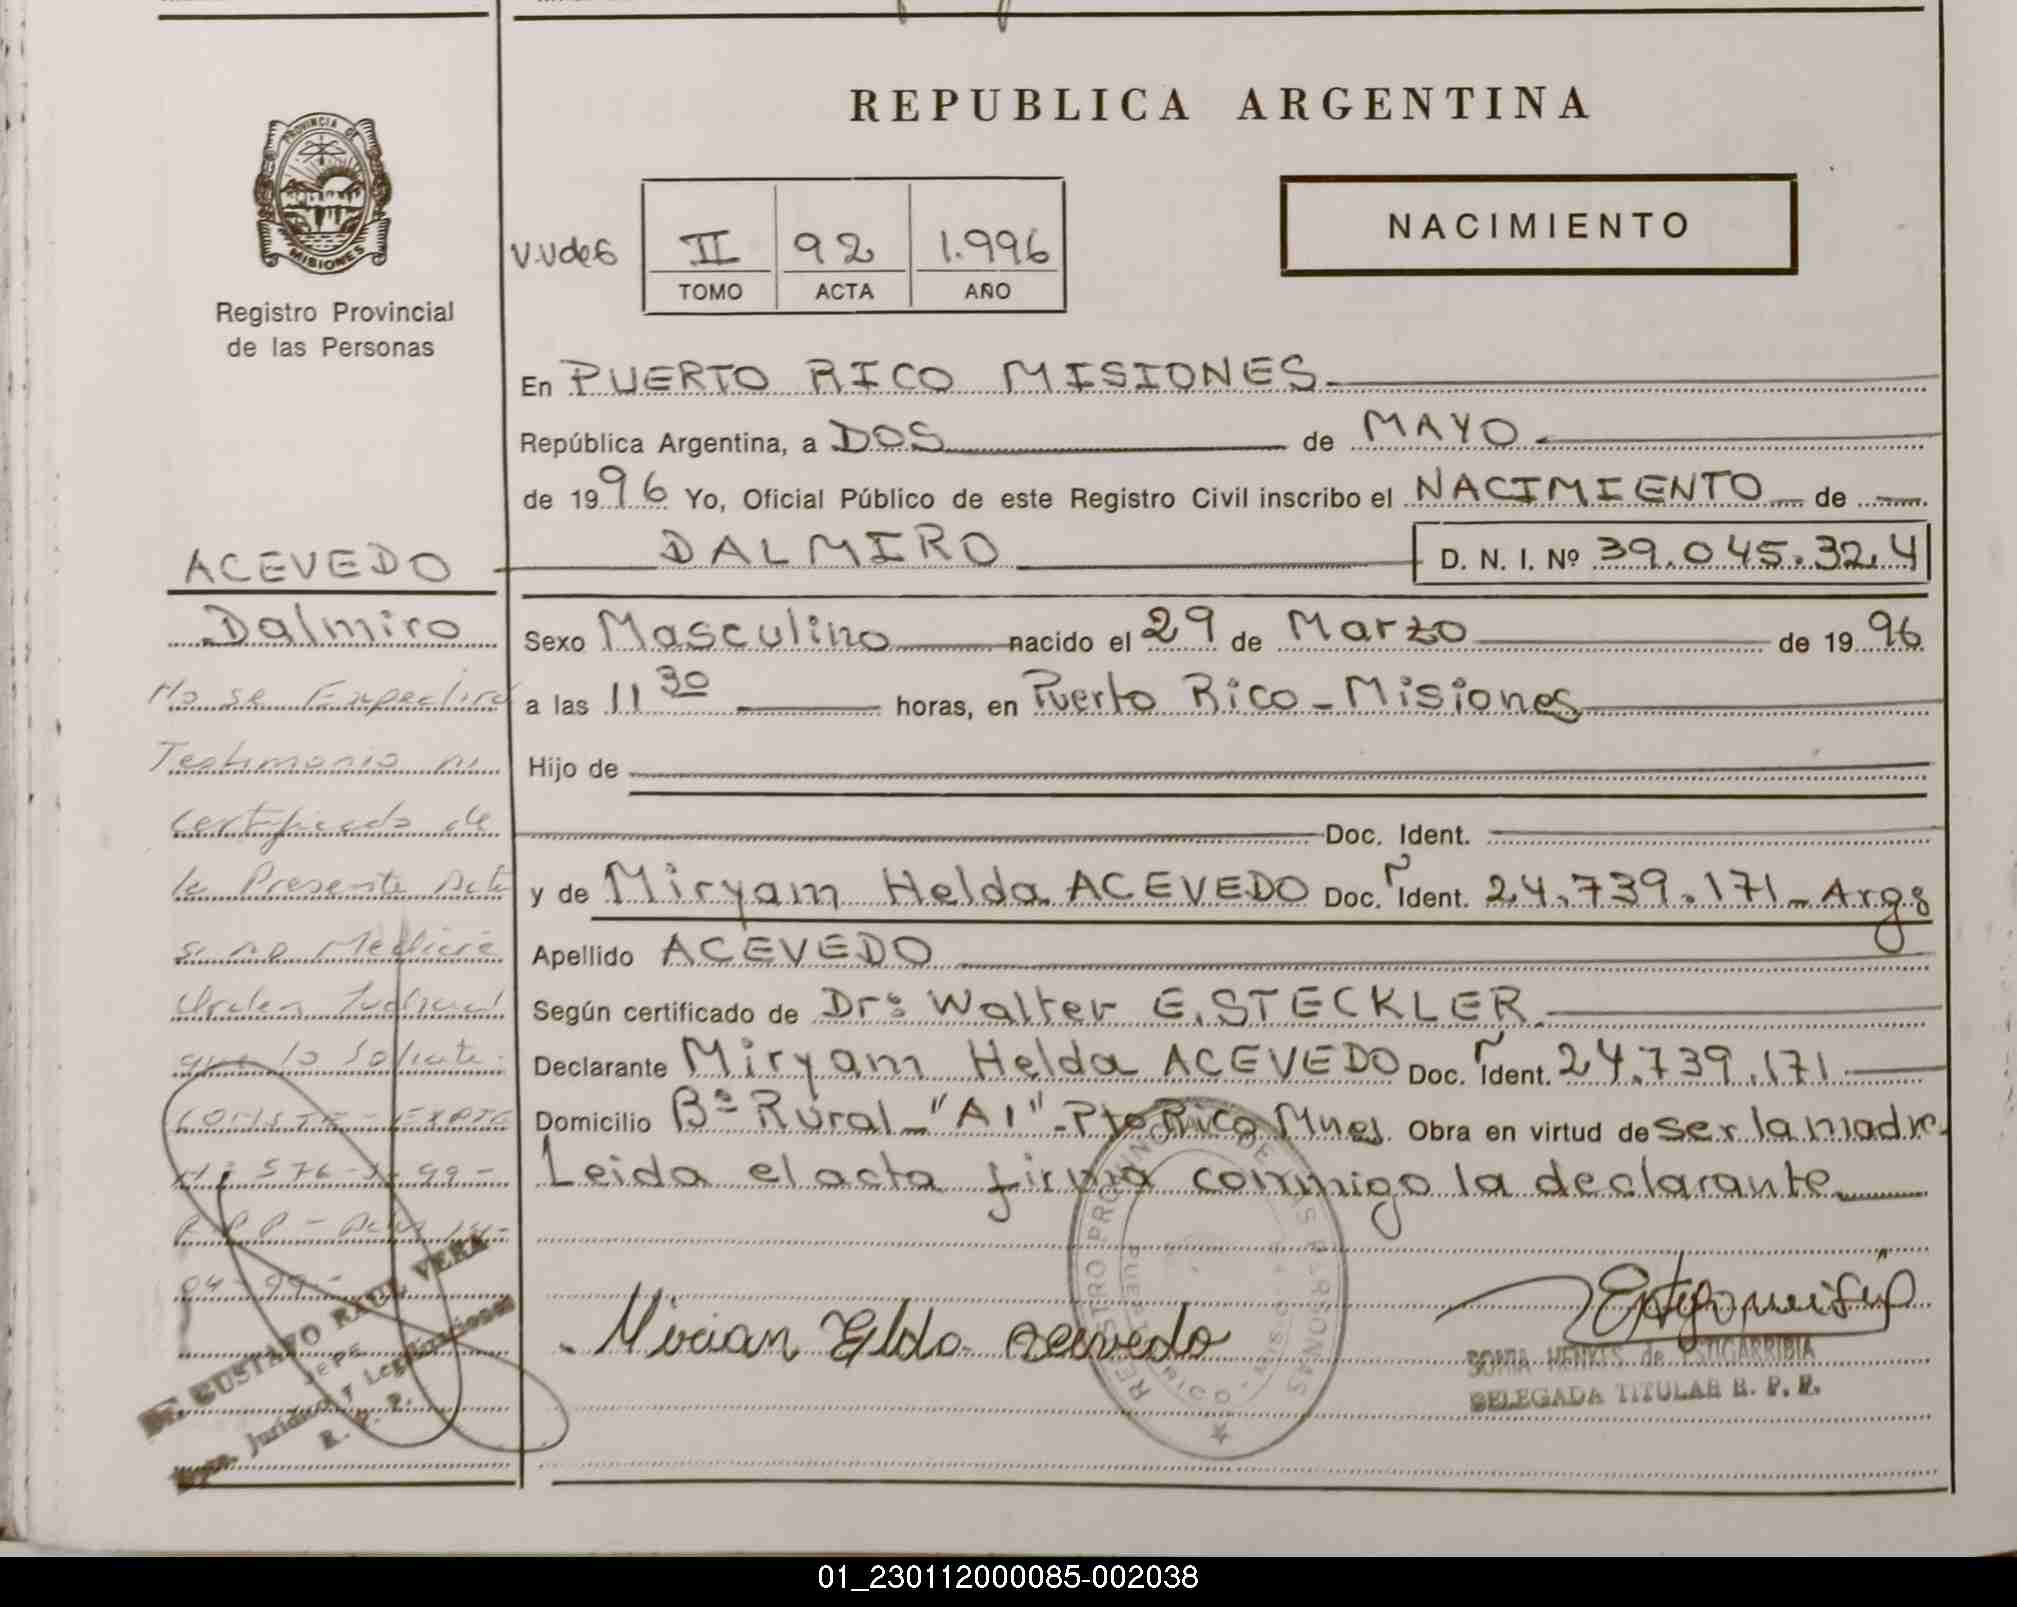 REPUBLICA ARGENTINA
PROVINCIA DE
MISIONES
Registro Provincial
de las Personas
V.Vdes
II 92 1.996
TOMO ACTA AÑO
NACIMIENTO
En PUERTO RICO MISIONES
República Argentina, a DOS de MAYO
de 1996 Yo, Oficial Público de este Registro Civil inscribo el NACIMIENTO de
DALMIRO D. N. I. Nº 39.045.324
Sexo Masculino nacido el 29 de Marzo de 1996
a las 11 30 horas, en Puerto Rico - Misiones
Hijo de
Doc. Ident.
y de Miryam Helda ACEVEDO Doc. Ident. 24.739.171 - Arg
Apellido ACEVEDO
Según certificado de Dr: Walter E. STECKLER
Declarante Miryam Helda ACEVEDO Doc. Ident. 24.739.171
Domicilio Bº Rural - "A1" - Pto Rico Mnes. Obra en virtud de ser la madre
Leida el acta firma conmigo la declarante
Mirian Elda acevedo
SONIA HENKES de ESTIGARRIBIA
DELEGADA TITULAR R. P. P.
ACEVEDO
Dalmiro
No se Expedira
Testimonio ni
certificado de
la Presente Acta
si no Mediare
Orden Judicial
que lo Solicite.
CONSTE - EXPTE
Nº 576 99 -
R.P.P -
04-99-
Dr. GUSTAVO RAUL VERA
JEFE
Dpto. Jurídico y Legalizaciones
R. P. P.
01_230112000085-002038